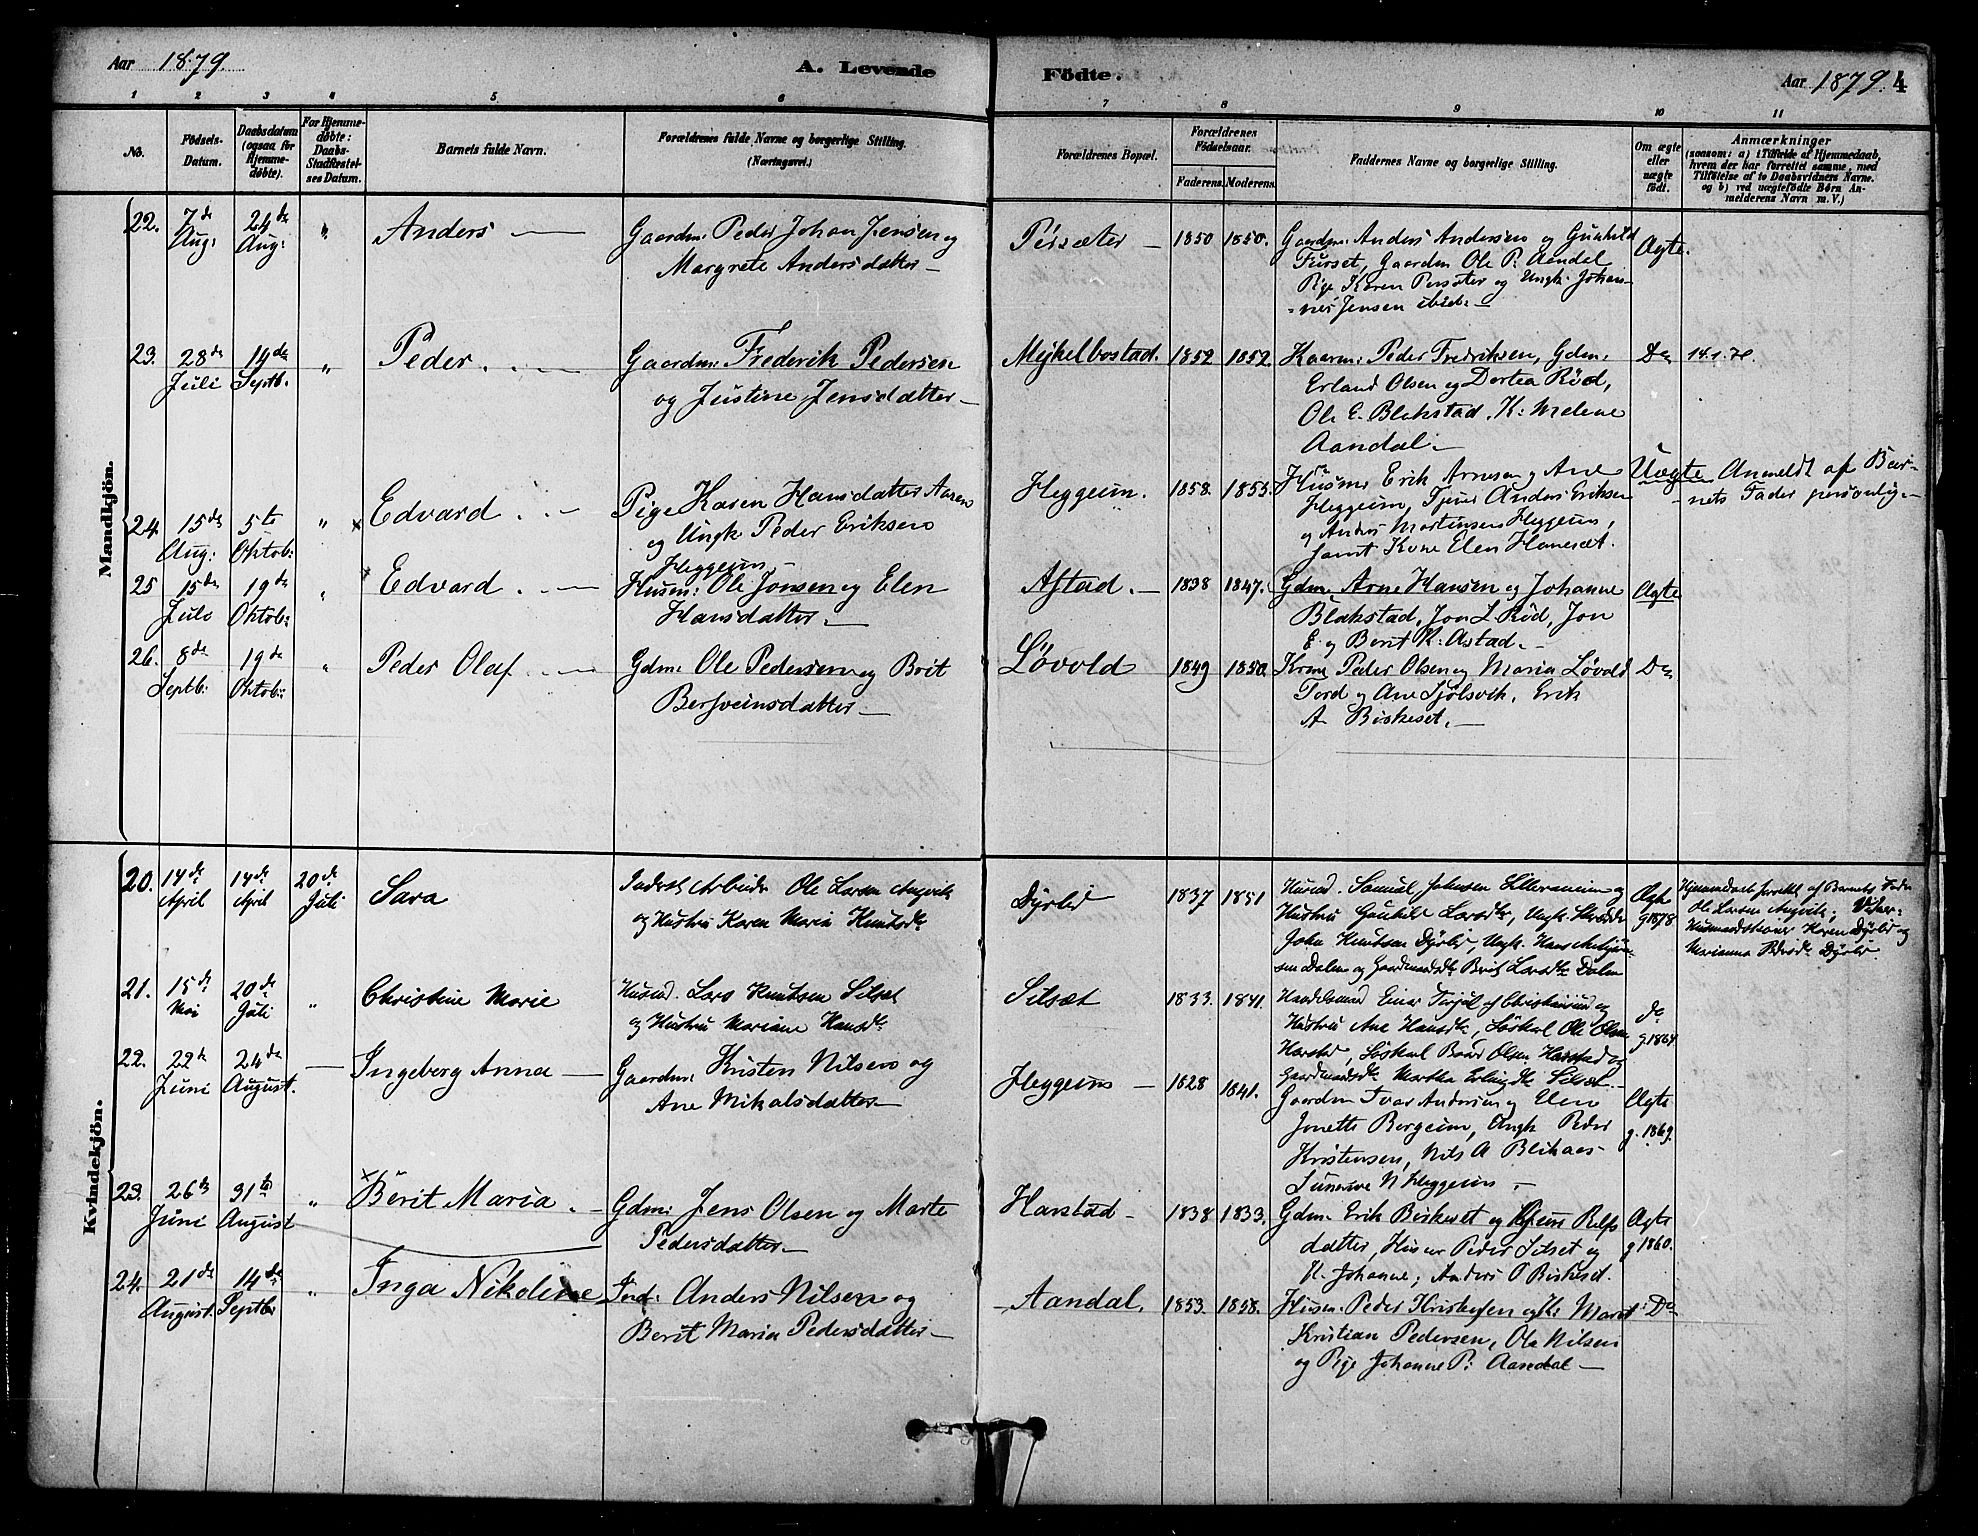 Aar 1879.
A. Levende
Födte.
Aar 1879. 4
1 2 3 4 5 6 7 8 9 10 11
No.
Födsels-
Datum.
Daabsdatum
(ogsaa for
Hjemme-
døbte).
For Hjemme-
døbte:
Daabs-
Stadfæstel-
ses Datum.
Barnets fulde Navn.
Forældrenes fulde Navne og borgerlige Stilling.
(Næringsvei.)
Forældrenes Bopæl.
Forældrenes
Födselsaar.
Faderens. Moderens.
Faddernes Navne og borgerlige Stilling.
Om ægte
eller
uægte
födt.
Anmærkninger
(saasom: a) i Tilfælde af Hjemmedaab,
hvem der har forrettet samme, med
Tilföielse af to Daabsvidners Navne.
og b) ved uægtefödte Börn An-
melderens Navn m. V.)
Mandkjön.
22. 7de Aug: 24de Aug: " Anders —
Gaardm: Peder Johan Jensen og
Margrete Andersdatter —
Persæter — 1850 1850.
Gaardm: Anders Andersen og Gunhild
Furset, Gaardm Ole P. Aandal
Pige Karen Persæter og Ungk: Johan-
nes Jensen ibid. —
Ægte.
23. 28de Juli 14de Septb. " Peder. —
Gaardm: Frederik Pedersen
og Justine Jensdatter —
Mejkelbostad. 1852 1852.
Kaarm: Peder Fredriksen, Gdm:
Erland Olsen og Dortea Rød,
Ole E. Blakstad, K: Malene
Aandal. —
Do 14.1.
24. 15de Aug: 5te Oktob: " x Edvard. —
Pige Karen Hansdatter Aasen
og Ungk: Peder Eriksen
Heggeim —
Heggeim. 1858. 1853.
Husm: Erik Arnesen og Ane
Heggeim, Tjener Anders Eriksen
og Anders Mortensen Heggeim,
samt Kone Elen Hanesæt.
Uægte
Anmeldt af Bar-
nets Fader personlig. —
25 15de Juli 19de Oktob: " Edvard. —
Husm: Ole Jonsen og Elen
Hansdatter. —
Astad. — 1838 1847.
Gdm. Arne Hansen og Johanne
Blakstad, Jon L Rød, Jon
E. og Berit K: Astad. —
Ægte
26. 8de Septb: 19de Oktob: " Peder Olaf. —
Gdm: Ole Pedersen og Brit
Bersveinsdatter —
Løvold 1849 1850.
Krm: Peder Olsen og Maria Løvold
Tord og Ane Sjølsvik, Erik
A. Birkeset. —
Do
Kvindekjön.
20. 14de April 14de April 20de Juli Sara
Inderst Arbeider Ole Larsen Angvik
og Hustru Karen Maria Knutsdtr
Dyrlid 1837 1851
Husmd. Samuel Johnsen Lilleranem og
Hustru Gunhild Larsdtr, Ungk. Skrædder
John Knutsen Dyrlid, Ungk. Hans
sen Dalen og Gaardmandsdtr Berit Larsdtr Dalen
Ægte g 1878
Hjemmedaab forrettet af Barnets Fader
Ole Larsen Angvik; Vidner:
Husmandskoner Karen Dyrlid og
Marianna Pedersdtr Dyrlid.
21. 15de Mai 20de Juli " Christine Marie
Husmd. Lars Knutsen Silsæt
og Hustru Mariane Hansdtr
Silsæt 1833. 1841.
Handelsmand Einar af Christiansund og
Hustru Ane Hansdtr, Løskarl Ole Olsen
Harstad, Løskarl Baard Olsen Harstad og
Gaardmandsdtr Martha Erlingsdtr Silsæt.
do g. 1864
22. 22de Juni 24de August. — Ingeborg Anna —
Gaardm: Kristen Nilsen og
Ane Mikalsdatter —
Heggeim — 1828 1841.
Gaardm Ivar Andersen og Elen
Jonette Bergeim, Ungk Peder
Kristensen, Nils A Blikaas
N Heggeim —
Ægte g. 1869.
23. 26de Juni 31te August " x Berit Maria. —
Gdm: Jens Olsen og Marte
Pedersdatter. —
Harstad — 1838 1833.
Gdm. Erik Birkeset og
datter, Husm Peder Silset og
H. Johanne; Anders O Birkeset.
Ægte g 1860.
24. 21de August 14de Septb: " Inga Nikoline
Ind: Anders Nilsen og
Berit Maria Pedersdatter —
— Aandal. 1853. 1858.
Husm: Peder Kristofersen og K: Marit
Kristian Pedersen, Ole Nilsen
og Pige Johanne P: Aandal —
Do